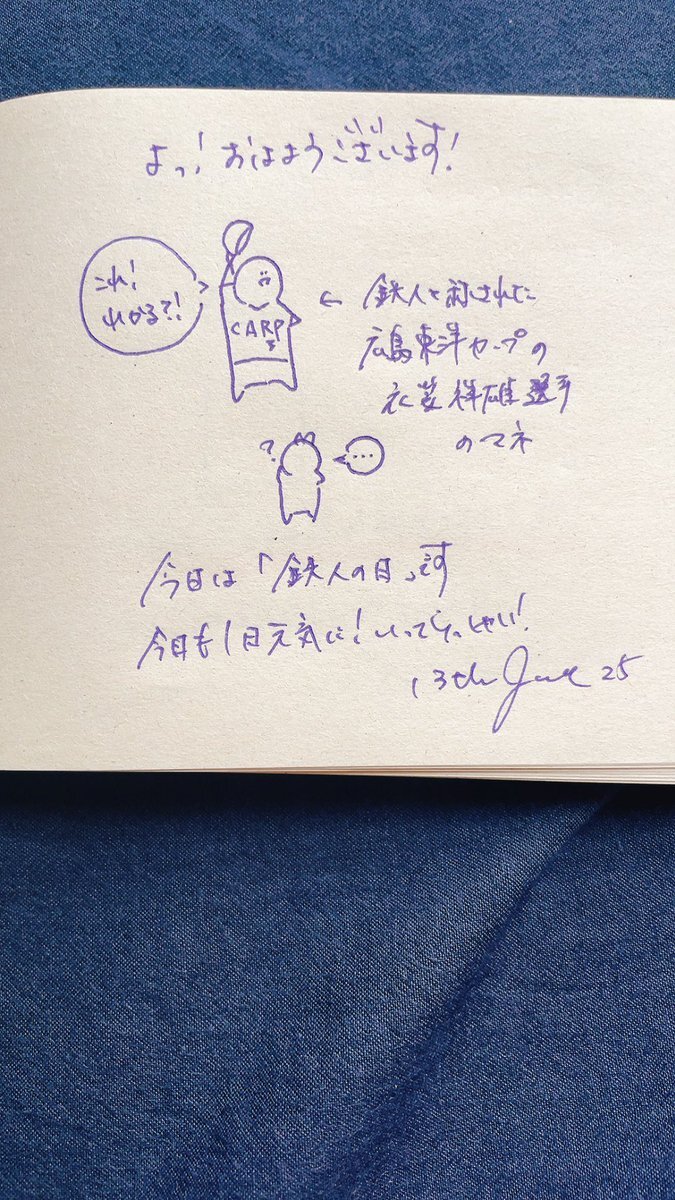 よっ！おはようございます！
これ！
わかる？！
CARP
3
← 鉄人と称された
広島東洋カープの
衣笠祥雄選手
のマネ
?
...
今日は「鉄人の日」です
今日も1日元気に！いってらっしゃい！
13th June 25